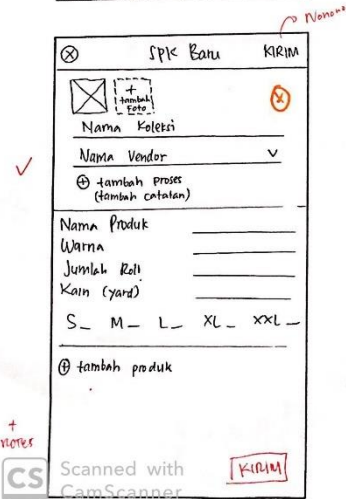 Nonono
SPK Baru KIRIM
+
tambah
Foto
Nama Koleksi
Nama Vendor
+ tambah proses
(tambah catatan)
Nama Produk
Warna
Jumlah Roll
Kain (yard)
S_ M_ L_ XL_ XXL_
+ tambah produk
+
NOTES
KIRIM
CS Scanned with
CamScanner